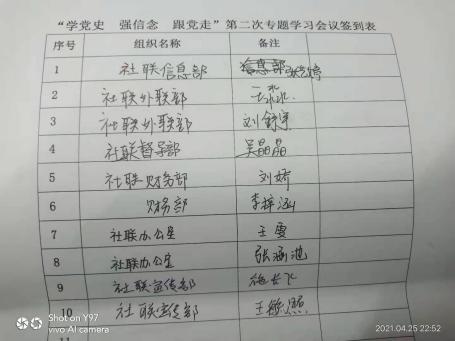 “学党史 强信念 跟党走”第二次专题学习会议签到表
序号 组织名称 备注
1 社联信息部
2 社联外联部 王淼
3 社联外联部 刘
4 社联督导部 吴晶晶
5 社联财务部 刘娇
6 财务部 李梓涵
7 社联办公室 王雯
8 社联办公室 张涵池
9 社联宣传部
10 社联宣传部 王 熙
11
Shot on Y97
vivo AI camera
2021.04.25 22:52